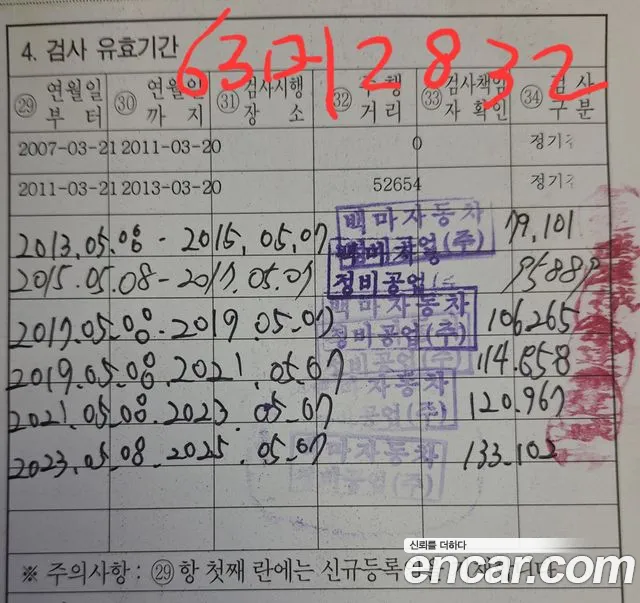 63마2832
4. 검사 유효기간
㉙ 연월일부터 ㉚ 연월일까지 ㉛ 검사시행장소 ㉜ 주행거리 ㉝ 검사책임자확인 ㉞ 검사구분
2007-03-21 2011-03-20 0 정기
2011-03-21 2013-03-20 52654 정기
2013.05.08 - 2015.05.07 백마자동차정비공업(주) 79,101
2015.05.08 - 2017.05.07 정비공업 95888
2017.05.08. 2019.05.07 백마자동차정비공업(주) 106265
2019.05.08. 2021.05.07 정비공업(주) 114.658
2021.05.08. 2023.05-07 자동차공업(주) 120.967
2023.05.08. 2025.05-07 백마자동차정비공업(주) 133.102
※ 주의사항 : ㉙ 항 첫째 란에는 신규등록
신뢰를 더하다
encar.com